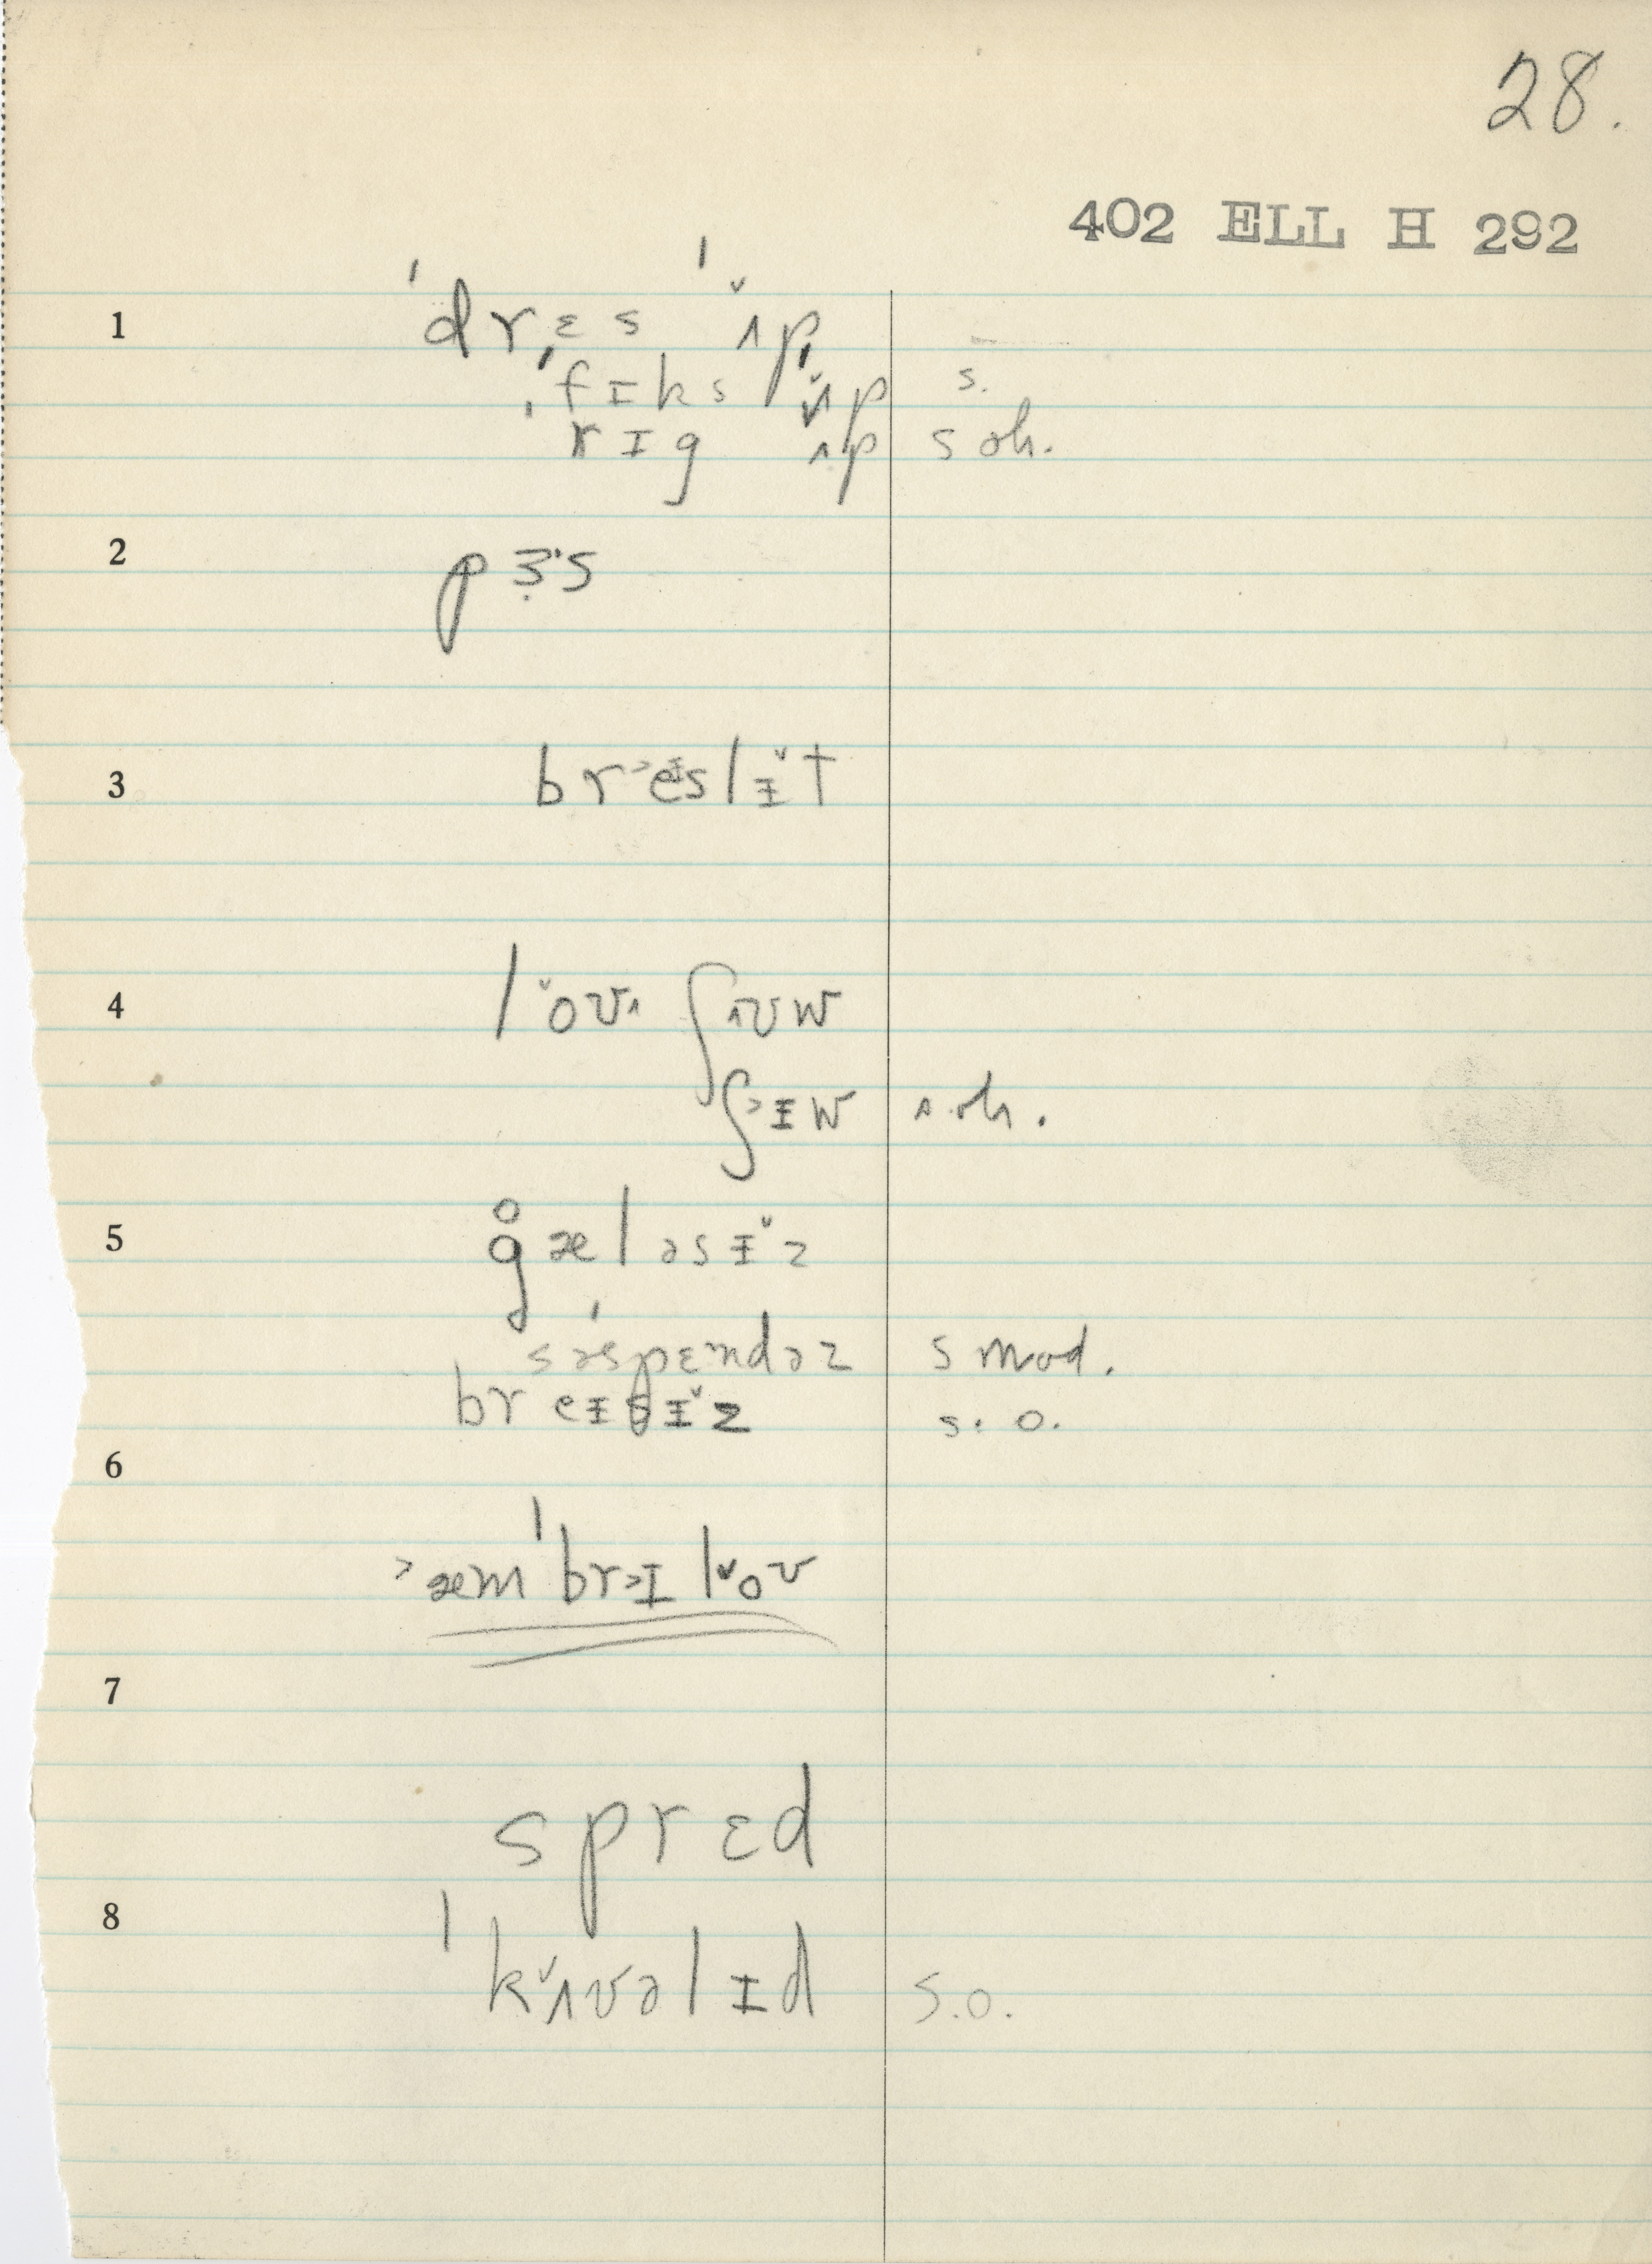 28.
402 ELL H 292
1 ˈdrɛs ˈʌ̌p
ˈfɪks ʌ̌p s.
ˈrɪg ʌp s ok.
2 pɜ̣'s
3 br˃eɪslɪ̌t
4 lˇovʌ ʃʌvw
ʃ˃ɪw s ok.
5 g̊æləsɪ̌z
səˈspɛndəz s mod.
breɪsɪ̌z s. o.
6 ˃æmˈbr˃ɪlˇov
7 sprɛd
8 ˈkˇʌvəlɪd s.o.